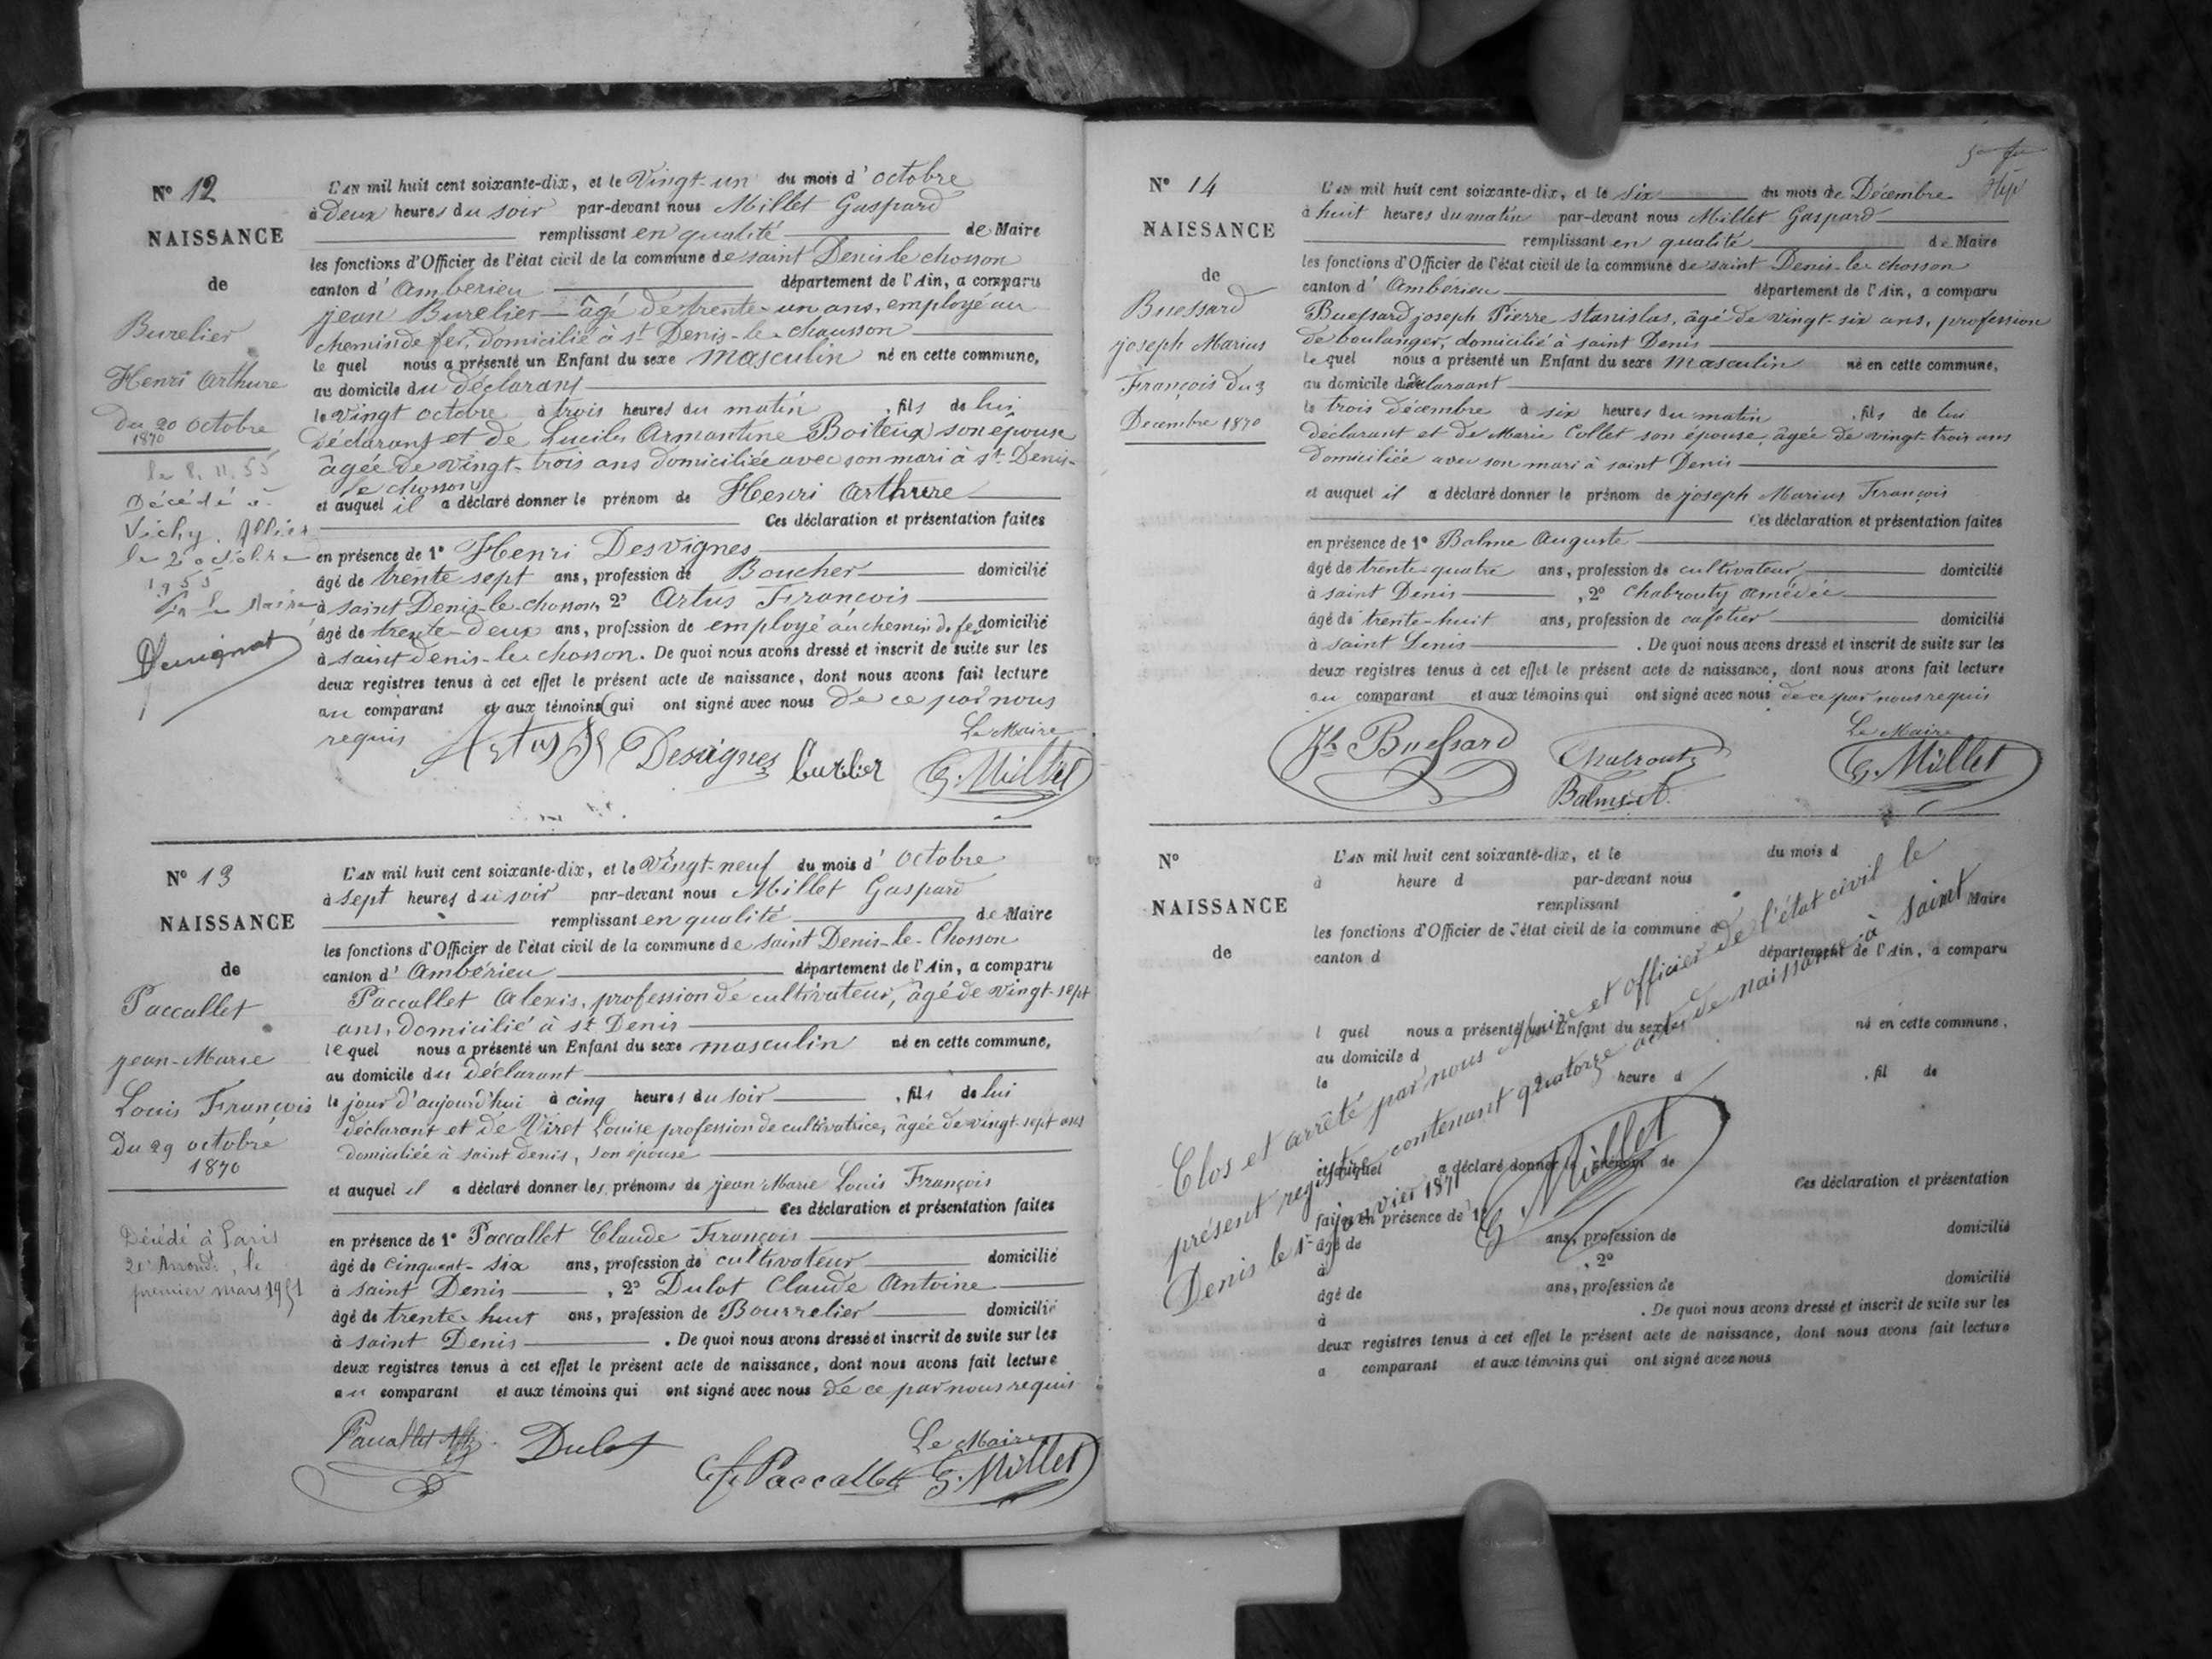 N° 12
NAISSANCE
de
Burelier
Henri Arthure
Du 20 octobre
1870
le 8.11.55
Décédé à
Vichy, Allier
le 2 octobre
1955
Le Maire
L'AN mil huit cent soixante-dix, et le Vingt-un du mois d'octobre
à Deux heures du soir par-devant nous Millet Gaspard
remplissant en qualité de Maire
les fonctions d'Officier de l'état civil de la commune de saint Denis le chosson
canton d'Ambérieu département de l'Ain, a comparu
jean Burelier âgé de trente-un ans, employé au
chemin de fer, domicilié à st Denis-le-chausson
le quel nous a présenté un Enfant du sexe masculin né en cette commune,
au domicile du déclarant
le vingt octobre à trois heures du matin, fils de lui
déclarant et de Lucile Armantine Boiteux son epouse
âgée de vingt-trois ans domiciliée avec son mari à st Denis-
le chosson
et auquel il a déclaré donner le prénom de Henri Arthure
Ces déclaration et présentation faites
en présence de 1° Henri Desvignes
âgé de trente sept ans, profession de Boucher domicilié
à saint Denis-le-chosson, 2° Artus François
âgé de trente-deux ans, profession de employé au chemin de fer domicilié
à saint denis-le-chosson. De quoi nous avons dressé et inscrit de suite sur les
deux registres tenus à cet effet le présent acte de naissance, dont nous avons fait lecture
au comparant et aux témoins qui ont signé avec nous de ce par nous
requis
Le Maire
Artus Desvignes Burelier G. Millet
N° 13
NAISSANCE
de
Paccallet
jean-Marie
Louis François
Du 29 octobre
1870
Décédé à Paris
20e Arrondt, le
premier mars 1951
L'AN mil huit cent soixante-dix, et le Vingt-neuf du mois d'octobre
à sept heures du soir par-devant nous Millet Gaspard
remplissant en qualité de Maire
les fonctions d'Officier de l'état civil de la commune de saint Denis-le-Chosson
canton d'Ambérieu département de l'Ain, a comparu
Paccallet Alexis, profession de cultivateur, âgé de vingt-sept
ans, domicilié à st Denis
le quel nous a présenté un Enfant du sexe masculin né en cette commune,
au domicile du déclarant
le jour d'aujourd'hui à cinq heures du soir, fils de lui
déclarant et de Viret Louise profession de cultivatrice, âgée de vingt-sept ans
domiciliée à saint denis, son épouse
et auquel il a déclaré donner les prénoms de jean Marie Louis François
Ces déclaration et présentation faites
en présence de 1° Paccallet Claude François
âgé de cinquant-six ans, profession de cultivateur domicilié
à saint Denis, 2° Dulot Claude Antoine
âgé de trente-huit ans, profession de Bourrelier domicilié
à saint Denis. De quoi nous avons dressé et inscrit de suite sur les
deux registres tenus à cet effet le présent acte de naissance, dont nous avons fait lecture
au comparant et aux témoins qui ont signé avec nous de ce par nous requis
Le Maire
Paccallet Dulot Paccallet G. Millet
N° 14
NAISSANCE
de
Buessard
joseph Marius
François du 3
Decembre 1870
L'AN mil huit cent soixante-dix, et le six du mois de Décembre
à huit heures du matin par-devant nous Millet Gaspard
remplissant en qualité de Maire
les fonctions d'Officier de l'état civil de la commune de saint Denis-le-chosson
canton d'Ambérieu département de l'Ain, a comparu
Buessard joseph Pierre stanislas, âgé de vingt-six ans, profession
de boulanger, domicilié à saint Denis
le quel nous a présenté un Enfant du sexe masculin né en cette commune,
au domicile du déclarant
le trois décembre à six heures du matin, fils de lui
déclarant et de Marie Collet son épouse, âgée de vingt-trois ans
domiciliée avec son mari à saint Denis
et auquel il a déclaré donner le prénom de joseph Marius François
Ces déclaration et présentation faites
en présence de 1° Balme Auguste
âgé de trente-quatre ans, profession de cultivateur domicilié
à saint Denis, 2° Chabrouty Amédée
âgé de trente-huit ans, profession de cafetier domicilié
à saint Denis. De quoi nous avons dressé et inscrit de suite sur les
deux registres tenus à cet effet le présent acte de naissance, dont nous avons fait lecture
au comparant et aux témoins qui ont signé avec nous de ce par nous requis
Le Maire
Jh Buessard Chabrouty G. Millet
Balme A.
N°
NAISSANCE
de
L'AN mil huit cent soixante-dix, et le du mois d
à heure d par-devant nous
remplissant Maire
les fonctions d'Officier de l'état civil de la commune d
canton d département de l'Ain, a comparu
l quel nous a présenté un Enfant du sexe né en cette commune,
au domicile d
le heure d, fil de
et auquel a déclaré donner le prénom de
Ces déclaration et présentation
faites en présence de 1°
âgé de ans, profession de domicilié
à , 2°
âgé de ans, profession de domicilié
à . De quoi nous avons dressé et inscrit de suite sur les
deux registres tenus à cet effet le présent acte de naissance, dont nous avons fait lecture
a comparant et aux témoins qui ont signé avec nous
Clos et arrêté par nous Maire et officier de l'état civil le
présent registre contenant quatorze actes de naissance à saint
Denis le 1er janvier 1871
G. Millet